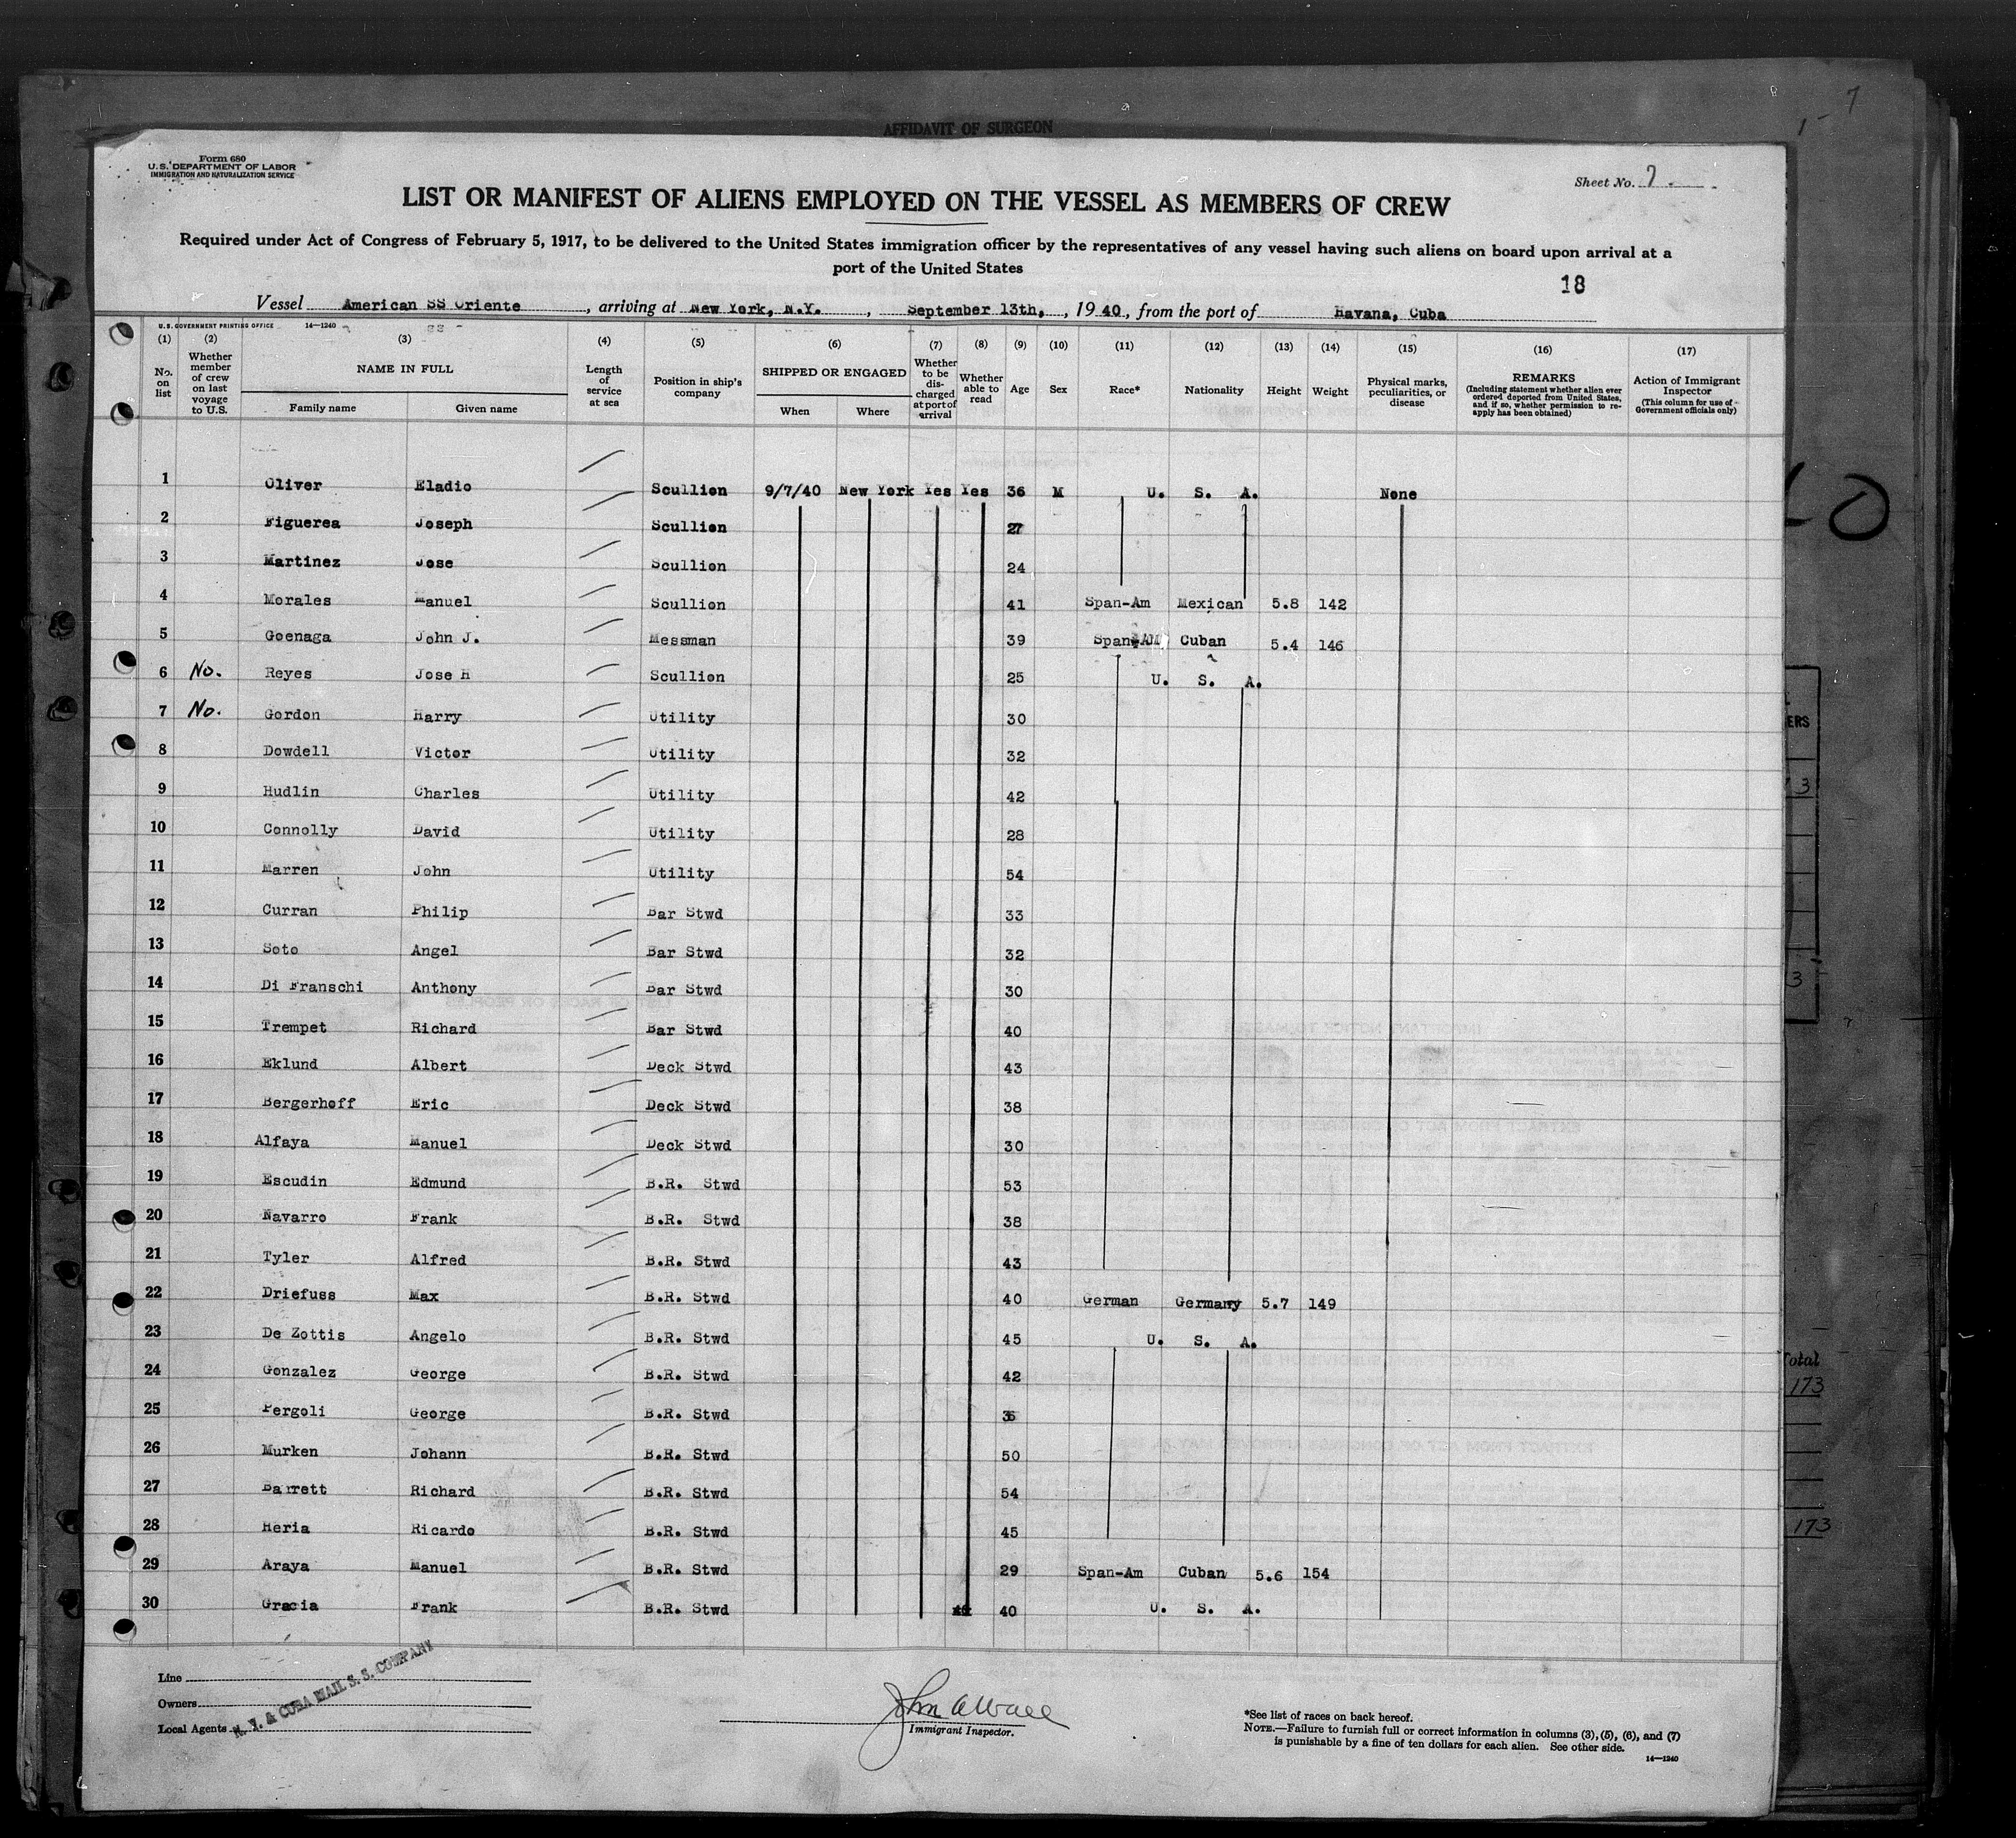 AFFIDAVIT OF SURGEON
7
Form 680
U. S. DEPARTMENT OF LABOR
IMMIGRATION AND NATURALIZATION SERVICE
Sheet No. 7.
LIST OR MANIFEST OF ALIENS EMPLOYED ON THE VESSEL AS MEMBERS OF CREW
Required under Act of Congress of February 5, 1917, to be delivered to the United States immigration officer by the representatives of any vessel having such aliens on board upon arrival at a
port of the United States
18
Vessel American SS Oriente, arriving at New York, N.Y., September 13th, 1940, from the port of Havana, Cuba
U. S. GOVERNMENT PRINTING OFFICE 14—1240
(1) No. on list
(2) Whether member of crew on last voyage to U.S.
(3) NAME IN FULL Family name Given name
(4) Length of service at sea
(5) Position in ship's company
(6) SHIPPED OR ENGAGED When Where
(7) Whether to be discharged at port of arrival
(8) Whether able to read
(9) Age
(10) Sex
(11) Race*
(12) Nationality
(13) Height
(14) Weight
(15) Physical marks, peculiarities, or disease
(16) REMARKS (Including statement whether alien ever ordered deported from United States, and if so, whether permission to reapply has been obtained)
(17) Action of Immigrant Inspector (This column for use of Government officials only)
1 Oliver Eladio Scullion 9/7/40 New York Yes Yes 36 M U. S. A. None
2 Figuerea Joseph Scullion 27
3 Martinez Jose Scullion 24
4 Morales Manuel Scullion 41 Span-Am Mexican 5.8 142
5 Goenaga John J. Messman 39 Span-AM Cuban 5.4 146
6 No. Reyes Jose H Scullion 25 U. S. A.
7 No. Gordon Harry Utility 30
8 Dowdell Victor Utility 32
9 Hudlin Charles Utility 42
10 Connolly David Utility 28
11 Marren John Utility 54
12 Curran Philip Bar Stwd 33
13 Soto Angel Bar Stwd 32
14 Di Franschi Anthony Bar Stwd 30
15 Trempet Richard Bar Stwd 40
16 Eklund Albert Deck Stwd 43
17 Bergerhoff Eric Deck Stwd 38
18 Alfaya Manuel Deck Stwd 30
19 Escudin Edmund B.R. Stwd 53
20 Navarro Frank B.R. Stwd 38
21 Tyler Alfred B.R. Stwd 43
22 Driefuss Max B.R. Stwd 40 German Germany 5.7 149
23 De Zottis Angelo B.R. Stwd 45 U. S. A.
24 Gonzalez George B.R. Stwd 42
25 Pergoli George B.R. Stwd 36
26 Murken Johann B.R. Stwd 50
27 Barrett Richard B.R. Stwd 54
28 Heria Ricardo B.R. Stwd 45
29 Araya Manuel B.R. Stwd 29 Span-Am Cuban 5.6 154
30 Gracia Frank B.R. Stwd 40 U. S. A.
Line
Owners
Local Agents
N. Y. & CUBA MAIL S. S. COMPANY
Immigrant Inspector.
*See list of races on back hereof.
NOTE.—Failure to furnish full or correct information in columns (3), (5), (6), and (7)
is punishable by a fine of ten dollars for each alien. See other side.
14—1240
ERS
Total
173
173